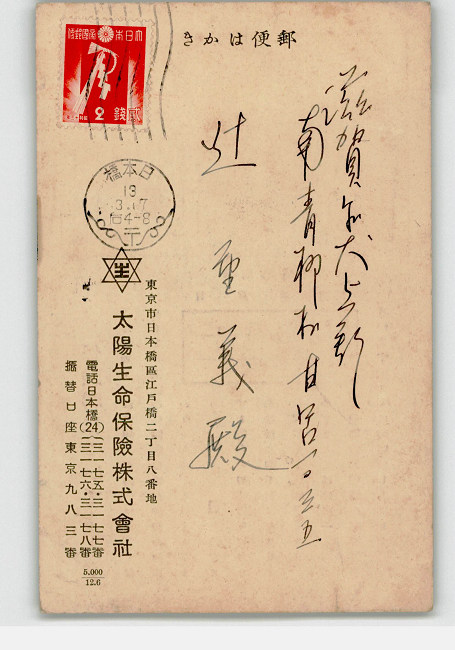 郵便はかき
滋賀県犬上郡
南青柳村甘呂一〇三五
辻 重義殿
大日本帝國郵便
2
貳錢
日本橋
13
3.17
后4-8
生
東京市日本橋區江戸橋二丁目八番地
太陽生命保險株式會社
電話日本橋(24)(三一七五・三一七七番
(三一七六・三一七八番
振替口座東京九八三番
5.000
12.6